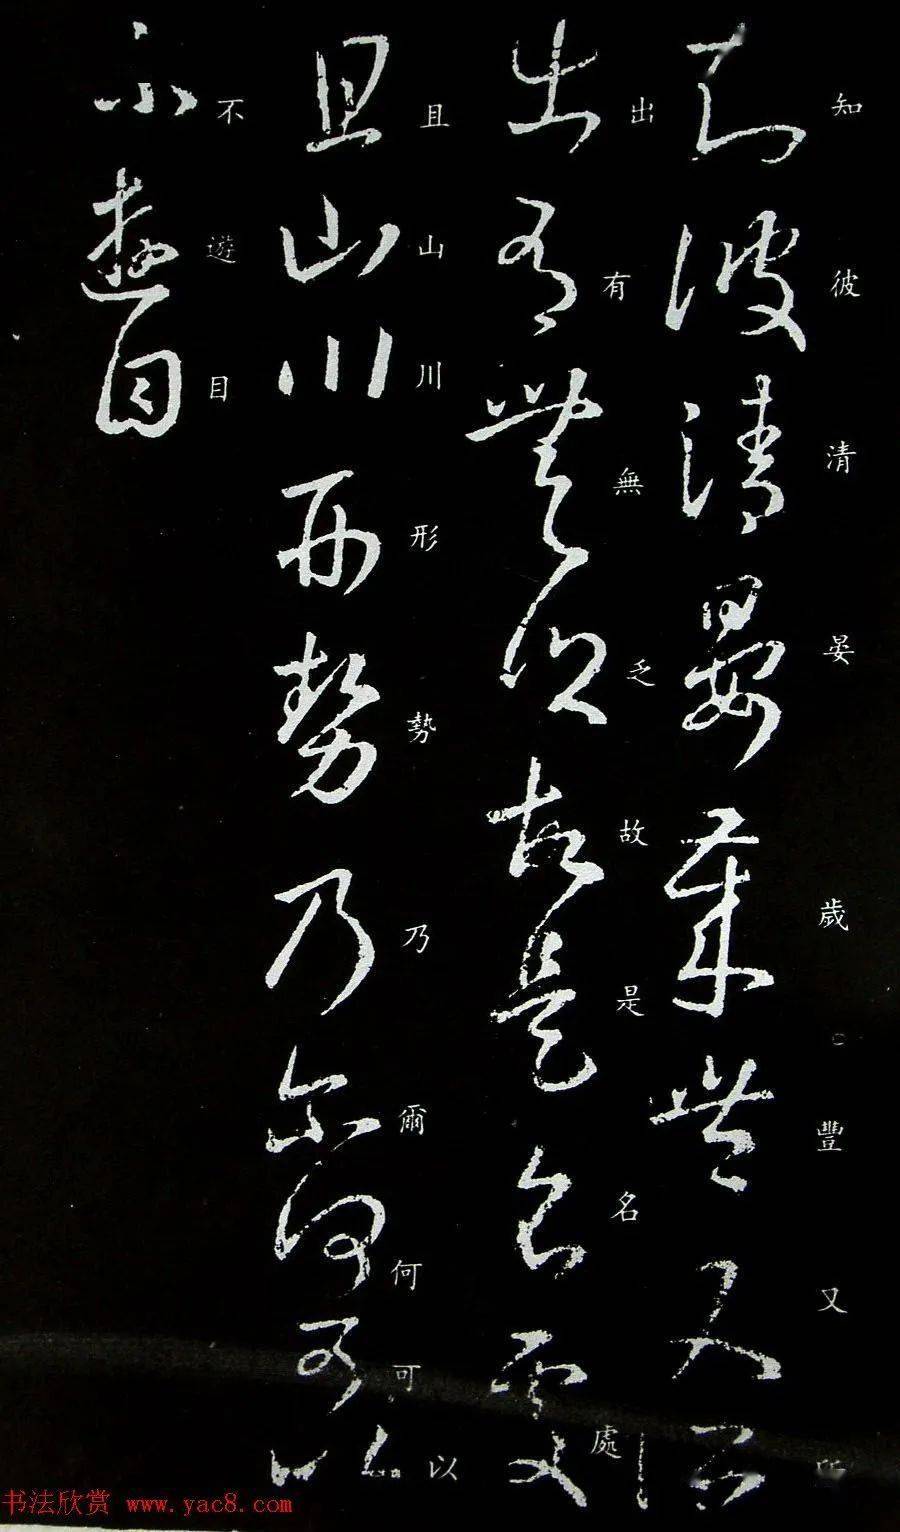 知彼清晏歲豐又所
出有無乏故是名處
且山川形勢乃爾何可以
不遊目
书法欣赏 www.yac8.com